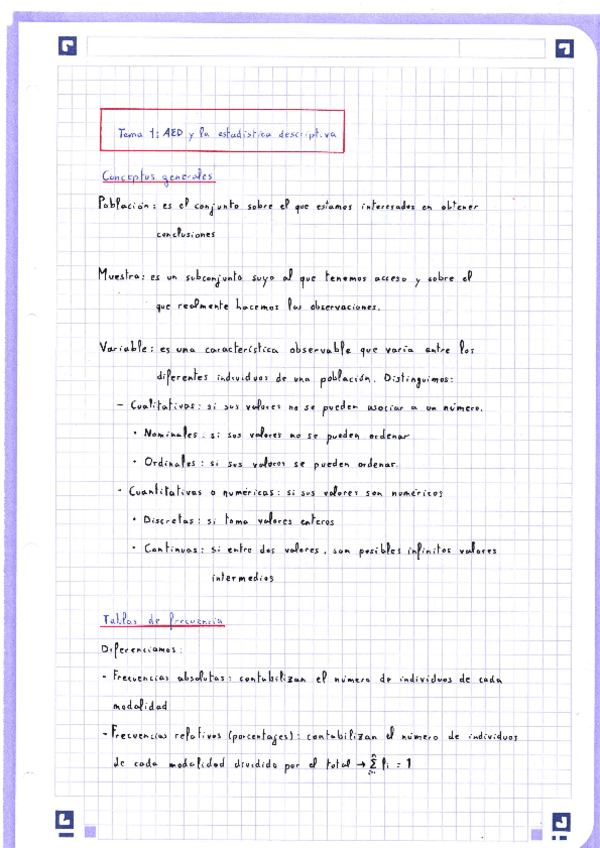 Tema 1: AED y la estadística descriptiva
Conceptos generales
Población: es el conjunto sobre el que estamos interesados en obtener
conclusiones
Muestra: es un subconjunto suyo al que tenemos acceso y sobre el
que realmente hacemos las observaciones.
Variable: es una característica observable que varía entre los
diferentes individuos de una población. Distinguimos:
- Cualitativas: si sus valores no se pueden asociar a un número.
· Nominales: si sus valores no se pueden ordenar
· Ordinales: si sus valores se pueden ordenar.
- Cuantitativas o numéricas: si sus valores son numéricos
· Discretas: si toma valores enteros
· Continuas: si entre dos valores, son posibles infinitos valores
intermedios
Tablas de frecuencia
Diferenciamos:
- Frecuencias absolutas: contabilizan el número de individuos de cada
modalidad
- Frecuencias relativas (porcentajes): contabilizan el número de individuos
de cada modalidad dividido por el total → Σ fi = 1